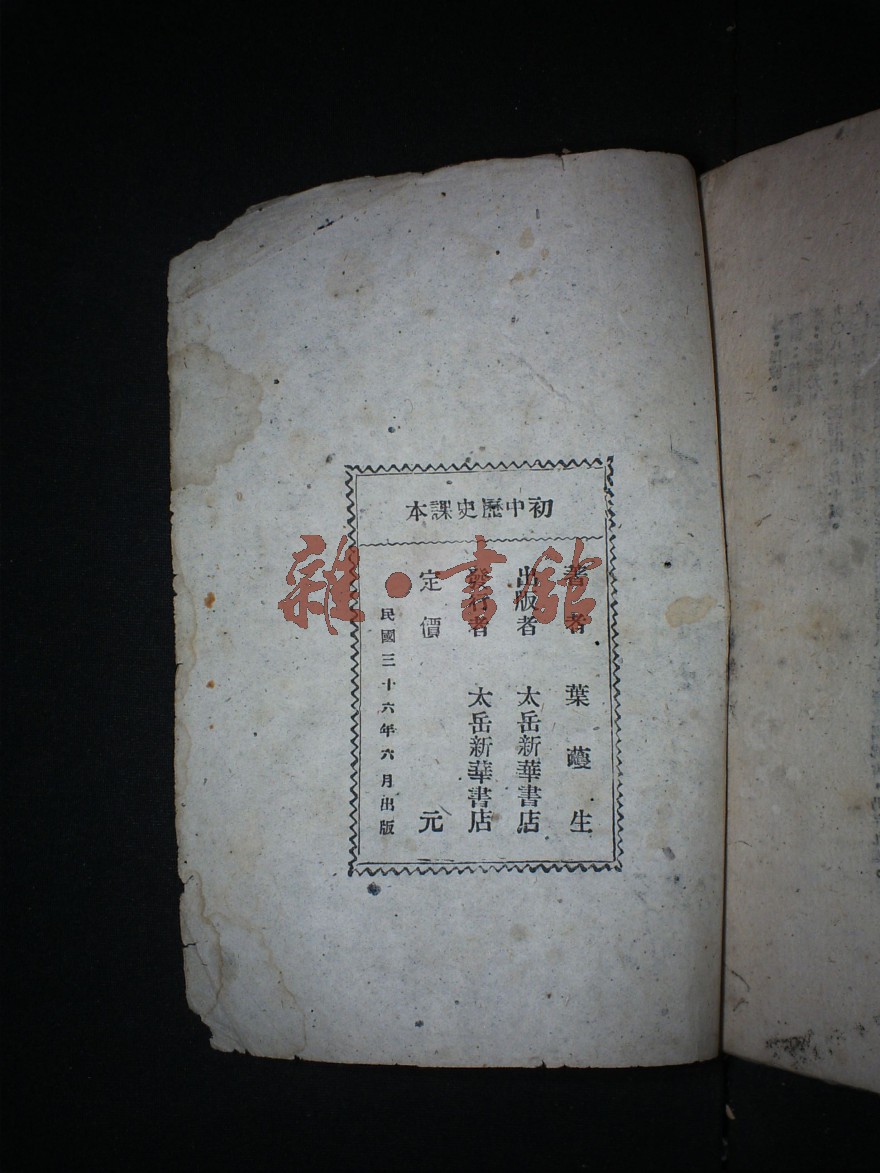 初中歷史課本
著者 葉蠖生
出版者 太岳新華書店
發行者 太岳新華書店
定價 元
民國三十六年六月出版
雜·書館